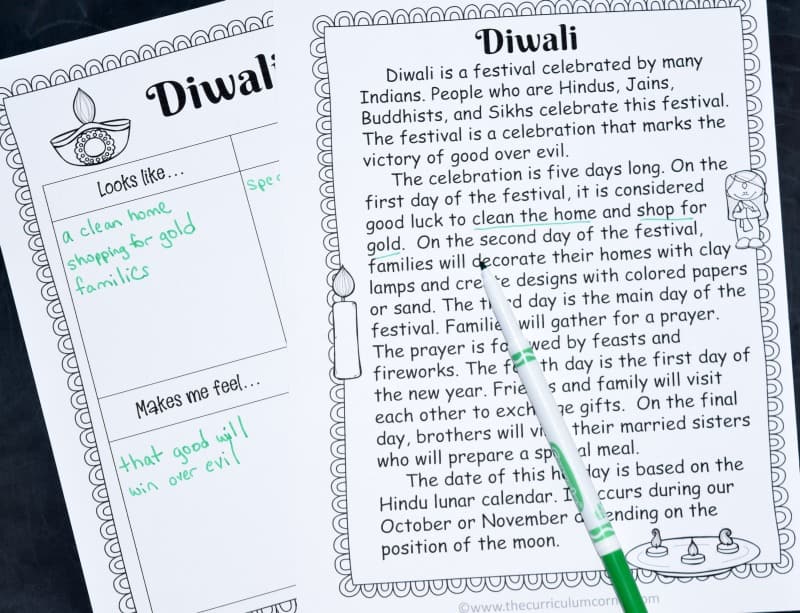 Diwali
Looks like...
a clean home
shopping for gold
families
Makes me feel...
that good will
win over evil
Diwali
Diwali is a festival celebrated by many
Indians. People who are Hindus, Jains,
Buddhists, and Sikhs celebrate this festival.
The festival is a celebration that marks the
victory of good over evil.
The celebration is five days long. On the
first day of the festival, it is considered
good luck to clean the home and shop for
gold. On the second day of the festival,
families will decorate their homes with clay
lamps and create designs with colored papers
or sand. The third day is the main day of the
festival. Families will gather for a prayer.
The prayer is followed by feasts and
fireworks. The fourth day is the first day of
the new year. Friends and family will visit
each other to exchange gifts. On the final
day, brothers will visit their married sisters
who will prepare a special meal.
The date of this holiday is based on the
Hindu lunar calendar. It occurs during our
October or November depending on the
position of the moon.